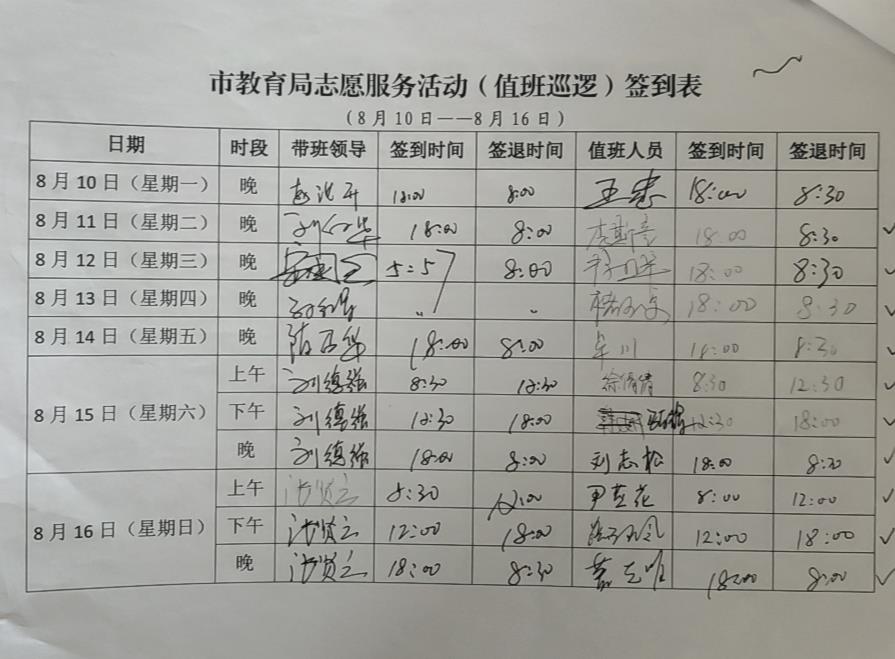 市教育局志愿服务活动（值班巡逻）签到表
（8月10日——8月16日）
日期 时段 带班领导 签到时间 签退时间 值班人员 签到时间 签退时间
8月10日（星期一） 晚 18:00 8:00 18:00 8:30
8月11日（星期二） 晚 18:00 8:00 18:00 8:30
8月12日（星期三） 晚 5:57 8:00 18:00 8:30
8月13日（星期四） 晚 〃 〃 18:00 8:30
8月14日（星期五） 晚 18:00 8:00 牟川 18:00 8:30
8月15日（星期六） 上午 刘德强 8:30 12:30 徐倩倩 8:30 12:30
下午 刘德强 12:30 18:00 12:30 18:00
晚 刘德强 18:00 8:00 刘志松 18:00 8:30
8月16日（星期日） 上午 8:30 12:00 8:00 12:00
下午 12:00 18:00 12:00 18:00
晚 18:00 8:30 18:00 8:00